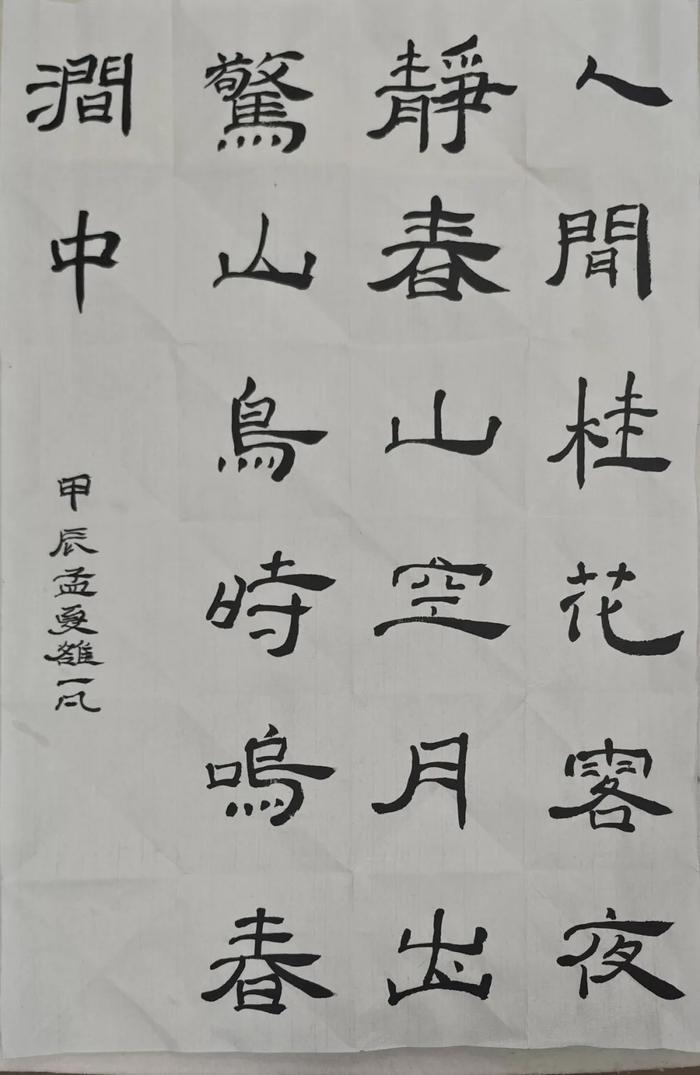 人間桂花客夜
靜春山空月出
驚山鳥時鳴春
澗中
甲辰孟夏一凡